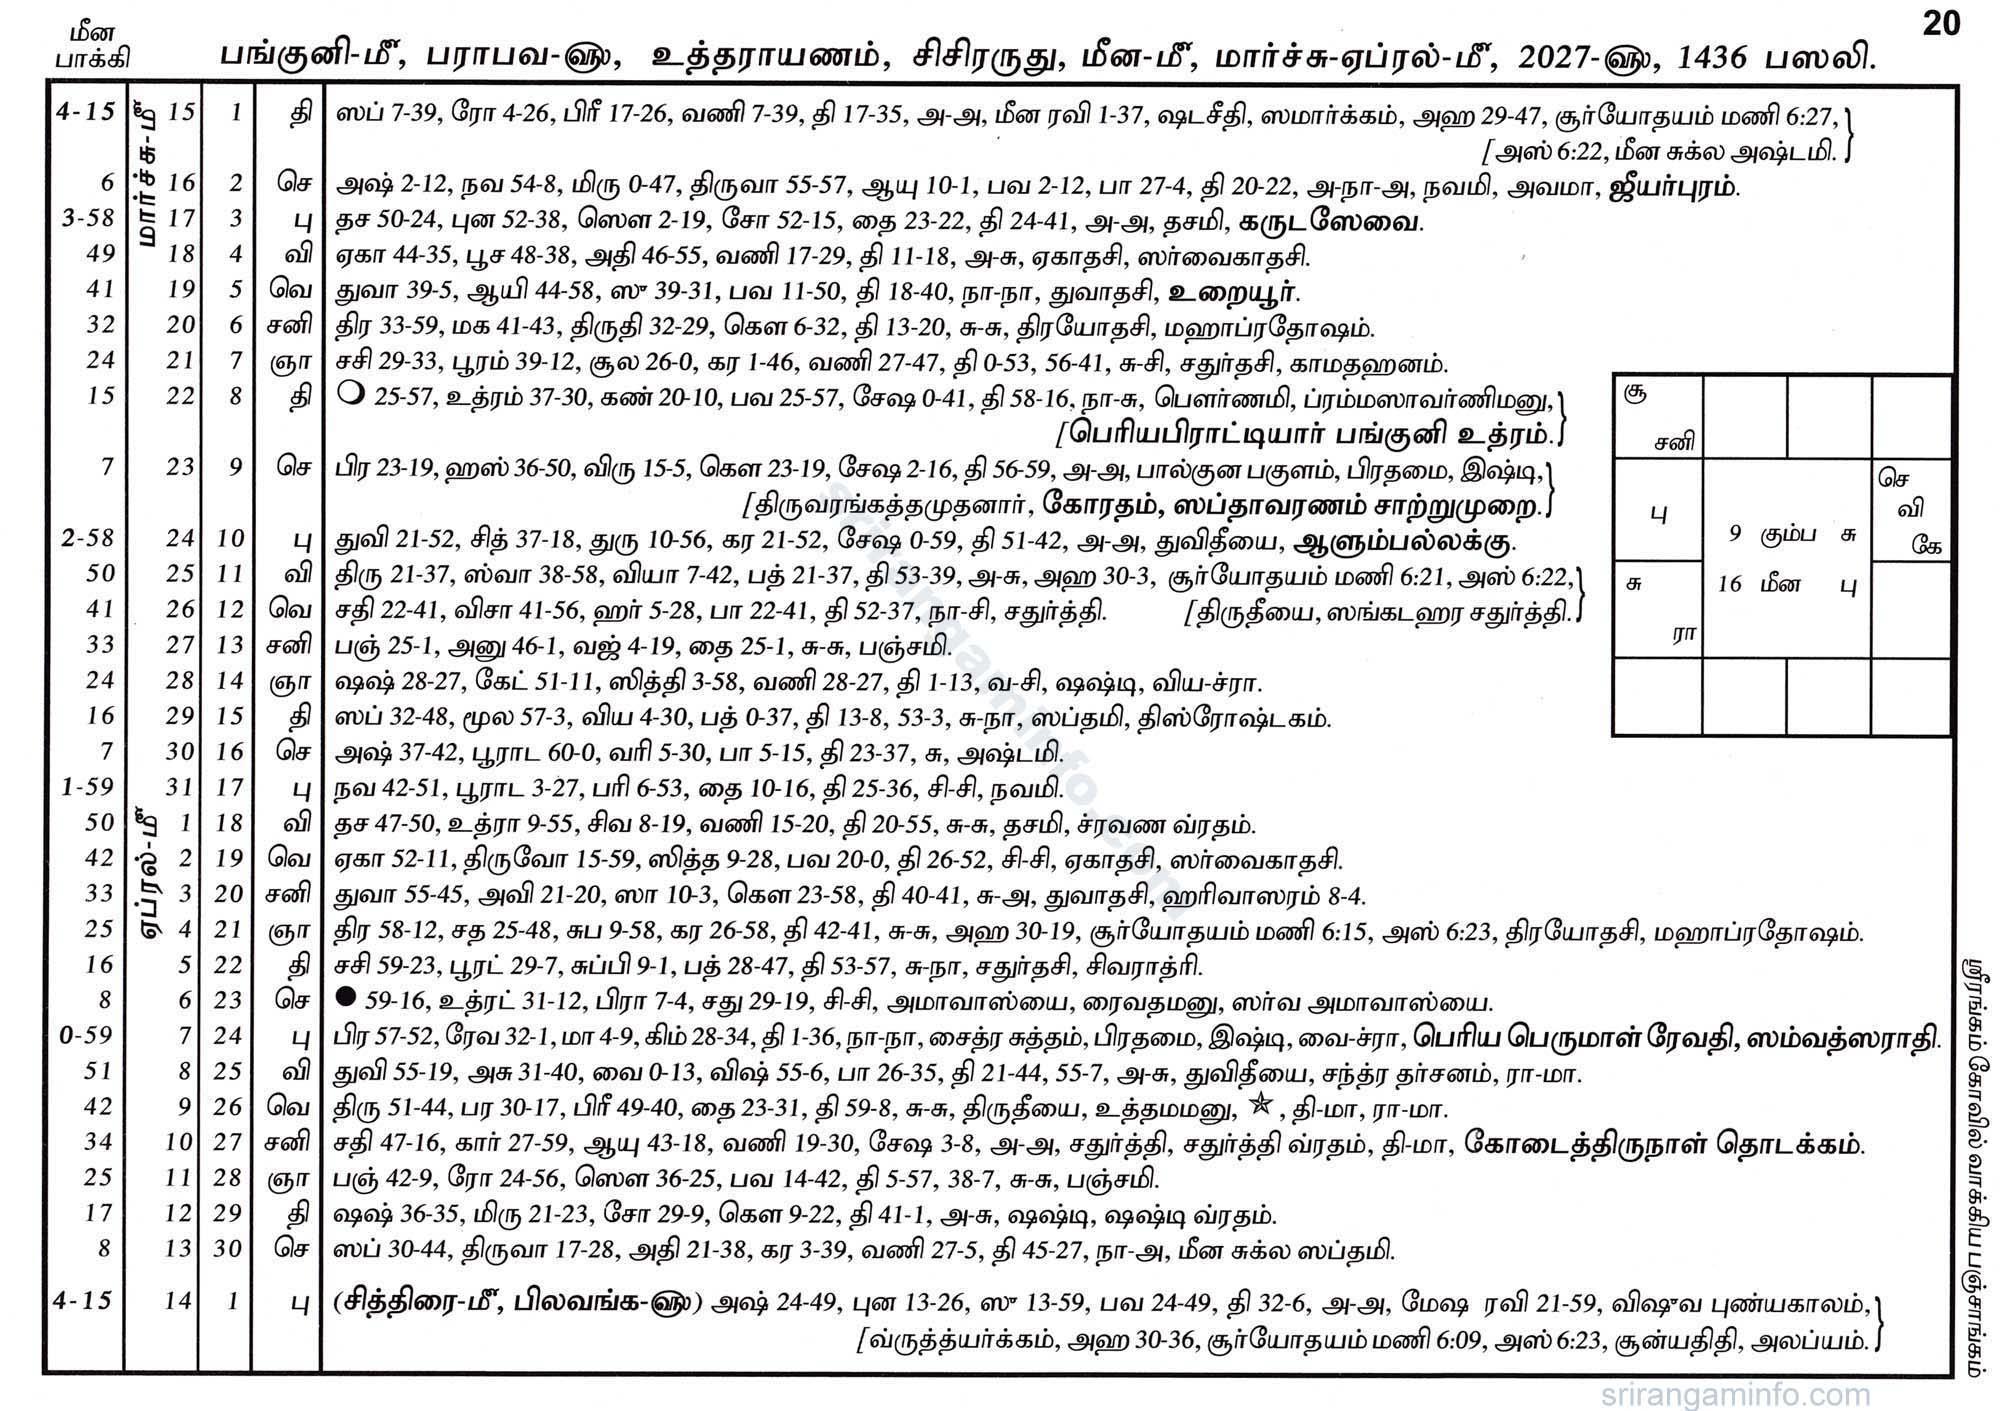 20
மீன
பாக்கி
பங்குனி-மீ, பராபவ-ஹு, உத்தராயணம், சிசிரருது, மீன-மீ, மார்ச்சு-ஏப்ரல்-மீ, 2027-ஹு, 1436 பஸலி.
மார்ச்சு-மீ
4-15 15 1 தி ஸப் 7-39, ரோ 4-26, பிரீ 17-26, வணி 7-39, தி 17-35, அ-அ, மீன ரவி 1-37, ஷடசீதி, ஸமார்க்கம், அஹ 29-47, சூர்யோதயம் மணி 6:27,
[அஸ் 6:22, மீன சுக்ல அஷ்டமி.
6 16 2 செ அஷ் 2-12, நவ 54-8, மிரு 0-47, திருவா 55-57, ஆயு 10-1, பவ 2-12, பா 27-4, தி 20-22, அ-நா-அ, நவமி, அவமா, ஜீயர்புரம்.
3-58 17 3 பு தச 50-24, புன 52-38, ஸௌ 2-19, சோ 52-15, தை 23-22, தி 24-41, அ-அ, தசமி, கருடஸேவை.
49 18 4 வி ஏகா 44-35, பூச 48-38, அதி 46-55, வணி 17-29, தி 11-18, அ-சு, ஏகாதசி, ஸர்வைகாதசி.
41 19 5 வெ துவா 39-5, ஆயி 44-58, ஸு 39-31, பவ 11-50, தி 18-40, நா-நா, துவாதசி, உறையூர்.
32 20 6 சனி திர 33-59, மக 41-43, திருதி 32-29, கௌ 6-32, தி 13-20, சு-சு, திரயோதசி, மஹாப்ரதோஷம்.
24 21 7 ஞா சசி 29-33, பூரம் 39-12, சூல 26-0, கர 1-46, வணி 27-47, தி 0-53, 56-41, சு-சி, சதுர்தசி, காமதஹனம்.
15 22 8 தி 25-57, உத்ரம் 37-30, கண் 20-10, பவ 25-57, சேஷ 0-41, தி 58-16, நா-சு, பௌர்ணமி, ப்ரம்மஸாவர்ணிமனு,
[பெரியபிராட்டியார் பங்குனி உத்ரம்.
7 23 9 செ பிர 23-19, ஹஸ் 36-50, விரு 15-5, கௌ 23-19, சேஷ 2-16, தி 56-59, அ-அ, பால்குன பகுளம், பிரதமை, இஷ்டி,
[திருவரங்கத்தமுதனார், கோரதம், ஸப்தாவரணம் சாற்றுமுறை.
2-58 24 10 பு துவி 21-52, சித் 37-18, துரு 10-56, கர 21-52, சேஷ 0-59, தி 51-42, அ-அ, துவிதீயை, ஆளும்பல்லக்கு.
50 25 11 வி திரு 21-37, ஸ்வா 38-58, வியா 7-42, பத் 21-37, தி 53-39, அ-சு, அஹ 30-3, சூர்யோதயம் மணி 6:21, அஸ் 6:22,
41 26 12 வெ சதி 22-41, விசா 41-56, ஹர் 5-28, பா 22-41, தி 52-37, நா-சி, சதுர்த்தி. [திருதீயை, ஸங்கடஹர சதுர்த்தி.
33 27 13 சனி பஞ் 25-1, அனு 46-1, வஜ் 4-19, தை 25-1, சு-சு, பஞ்சமி.
24 28 14 ஞா ஷஷ் 28-27, கேட் 51-11, ஸித்தி 3-58, வணி 28-27, தி 1-13, வ-சி, ஷஷ்டி, விய-ச்ரா.
16 29 15 தி ஸப் 32-48, மூல 57-3, விய 4-30, பத் 0-37, தி 13-8, 53-3, சு-நா, ஸப்தமி, திஸ்ரோஷ்டகம்.
7 30 16 செ அஷ் 37-42, பூராட 60-0, வரி 5-30, பா 5-15, தி 23-37, சு, அஷ்டமி.
1-59 31 17 பு நவ 42-51, பூராட 3-27, பரி 6-53, தை 10-16, தி 25-36, சி-சி, நவமி.
ஏப்ரல்-மீ
50 1 18 வி தச 47-50, உத்ரா 9-55, சிவ 8-19, வணி 15-20, தி 20-55, சு-சு, தசமி, ச்ரவண வ்ரதம்.
42 2 19 வெ ஏகா 52-11, திருவோ 15-59, ஸித்த 9-28, பவ 20-0, தி 26-52, சி-சி, ஏகாதசி, ஸர்வைகாதசி.
33 3 20 சனி துவா 55-45, அவி 21-20, ஸா 10-3, கௌ 23-58, தி 40-41, சு-அ, துவாதசி, ஹரிவாஸரம் 8-4.
25 4 21 ஞா திர 58-12, சத 25-48, சுப 9-58, கர 26-58, தி 42-41, சு-சு, அஹ 30-19, சூர்யோதயம் மணி 6:15, அஸ் 6:23, திரயோதசி, மஹாப்ரதோஷம்.
16 5 22 தி சசி 59-23, பூரட் 29-7, சுப்பி 9-1, பத் 28-47, தி 53-57, சு-நா, சதுர்தசி, சிவராத்ரி.
8 6 23 செ 59-16, உத்ரட் 31-12, பிரா 7-4, சது 29-19, சி-சி, அமாவாஸ்யை, ரைவதமனு, ஸர்வ அமாவாஸ்யை.
0-59 7 24 பு பிர 57-52, ரேவ 32-1, மா 4-9, கிம் 28-34, தி 1-36, நா-நா, சைத்ர சுத்தம், பிரதமை, இஷ்டி, வை-ச்ரா, பெரிய பெருமாள் ரேவதி, ஸம்வத்ஸராதி.
51 8 25 வி துவி 55-19, அசு 31-40, வை 0-13, விஷ் 55-6, பா 26-35, தி 21-44, 55-7, அ-சு, துவிதீயை, சந்த்ர தர்சனம், ரா-மா.
42 9 26 வெ திரு 51-44, பர 30-17, பிரீ 49-40, தை 23-31, தி 59-8, சு-சு, திருதீயை, உத்தமமனு, ☆, தி-மா, ரா-மா.
34 10 27 சனி சதி 47-16, கார் 27-59, ஆயு 43-18, வணி 19-30, சேஷ 3-8, அ-அ, சதுர்த்தி, சதுர்த்தி வ்ரதம், தி-மா, கோடைத்திருநாள் தொடக்கம்.
25 11 28 ஞா பஞ் 42-9, ரோ 24-56, ஸௌ 36-25, பவ 14-42, தி 5-57, 38-7, சு-சு, பஞ்சமி.
17 12 29 தி ஷஷ் 36-35, மிரு 21-23, சோ 29-9, கௌ 9-22, தி 41-1, அ-சு, ஷஷ்டி, ஷஷ்டி வ்ரதம்.
8 13 30 செ ஸப் 30-44, திருவா 17-28, அதி 21-38, கர 3-39, வணி 27-5, தி 45-27, நா-அ, மீன சுக்ல ஸப்தமி.
4-15 14 1 பு (சித்திரை-மீ, பிலவங்க-ஹு) அஷ் 24-49, புன 13-26, ஸு 13-59, பவ 24-49, தி 32-6, அ-அ, மேஷ ரவி 21-59, விஷுவ புண்யகாலம்,
[வ்ருத்த்யர்க்கம், அஹ 30-36, சூர்யோதயம் மணி 6:09, அஸ் 6:23, சூன்யதிதி, அலப்யம்.
சூ
சனி
பு
செ
வி
கே
9 கும்ப சு
16 மீன பு
சு
ரா
ஸ்ரீரங்கம் கோவில் வாக்கிய பஞ்சாங்கம்
srirangaminfo.com
srirangaminfo.com